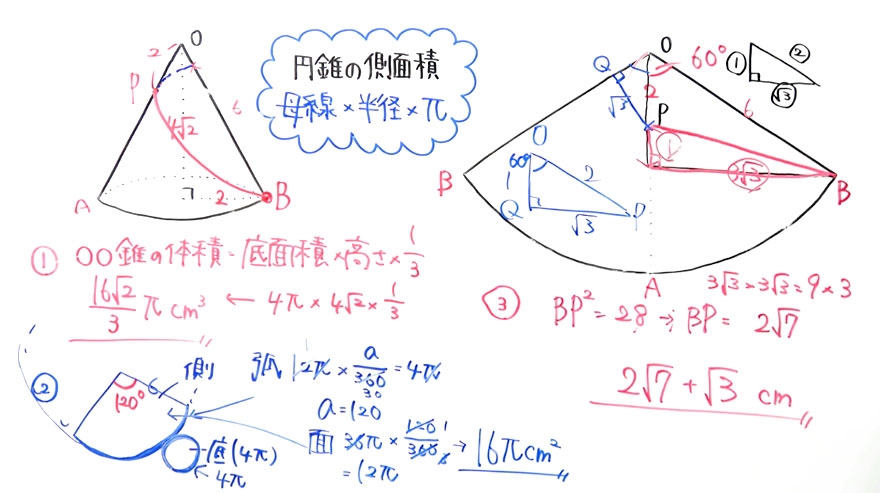 円錐の側面積
母線×半径×π
O
2
P
6
4√2
A
2
B
O
60°
① ② √3
Q
2
√3
6
P
①
3√3
B
B
A
O
60°
2
1
Q
√3
P
① ○○錐の体積=底面積×高さ×1/3
16√2/3 π cm³ ← 4π×4√2×1/3
②
6
120°
側
底(4π)
4π
弧 12π×a/360=4π
30
a=120
面 36π×120/360 → 16πcm²
=12π
3√3×3√3=9×3
③ BP²=28 → BP=2√7
2√7+√3 cm